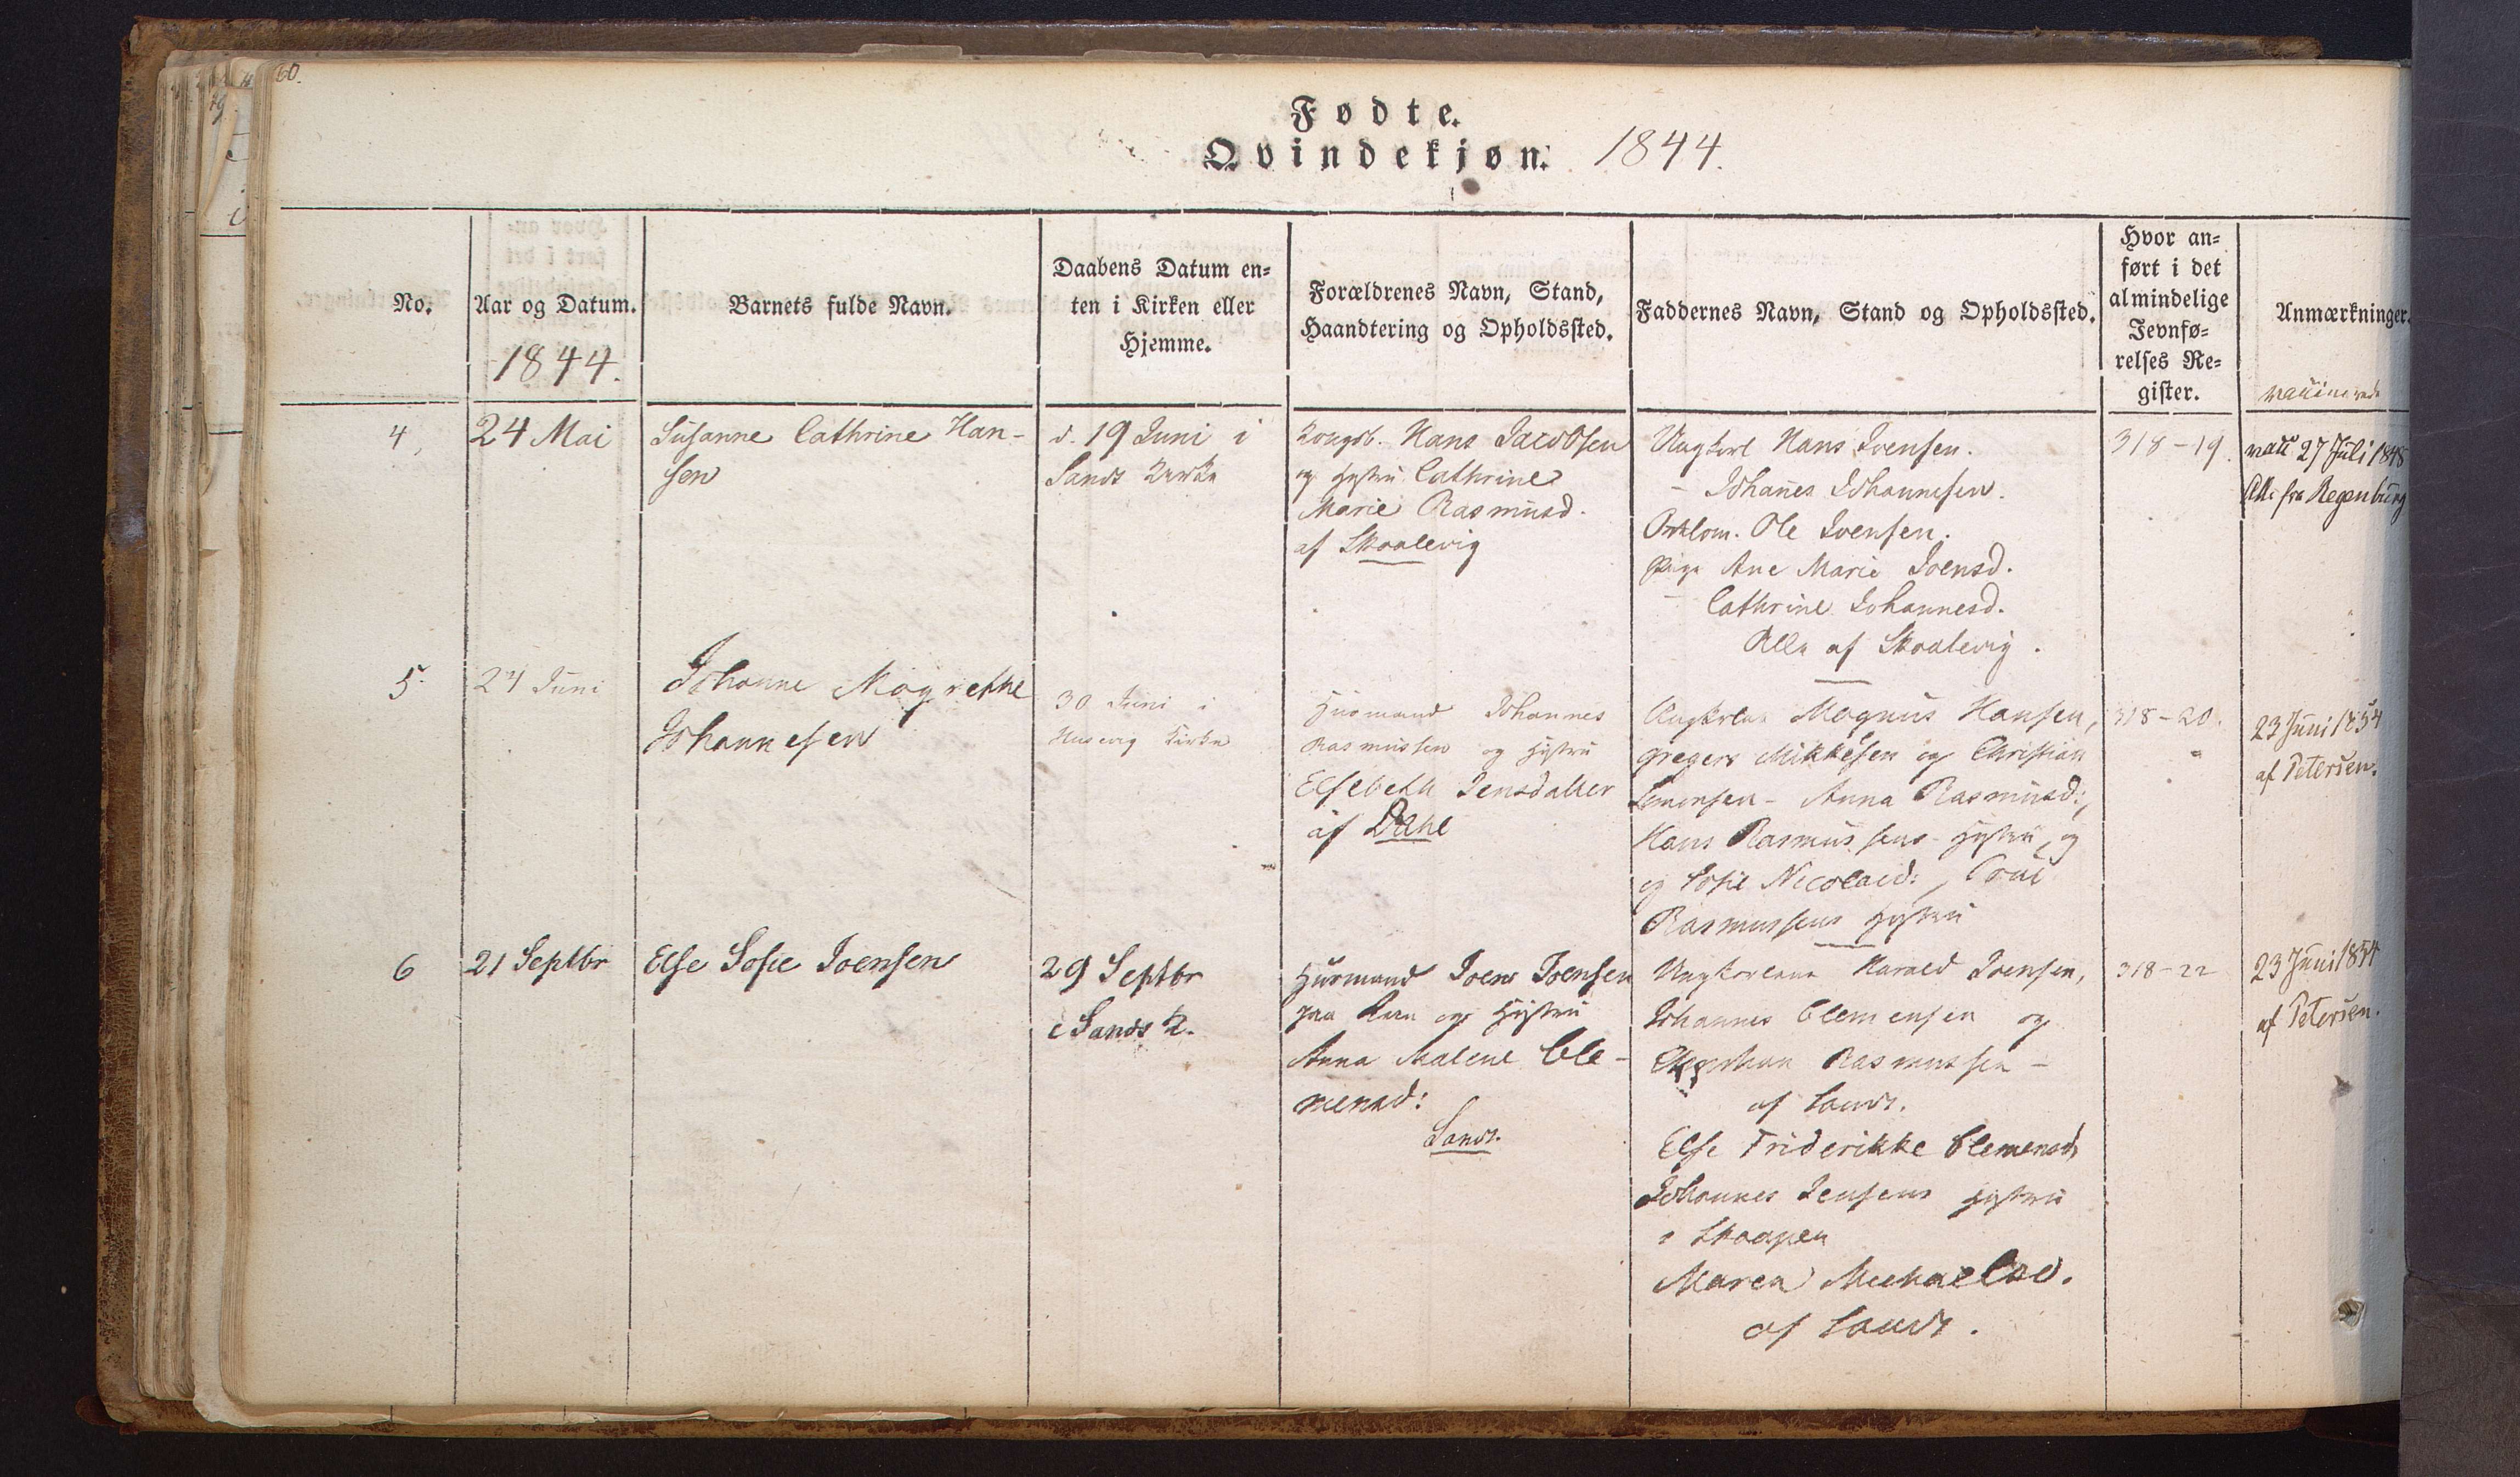 60.
Fødte.
Qvindekjøn. 1844.
No.
Aar og Datum.
1844.
Barnets fulde Navn.
Daabens Datum en-
ten i Kirken eller
Hjemme.
Forældrenes Navn, Stand,
Haandtering og Opholdssted.
Faddernes Navn, Stand og Opholdssted.
Hvor an-
ført i det
almindelige
Jevnfø-
relses Re-
gister.
Anmærkninger.
4,
24 Mai
Susanne Cathrine Han-
sen
d. 19 Juni i
Sands Kirke
Kongsb. Hans Jacobsen
og Hustru Cathrine
Marie Rasmusd.
af Skaalevig
Ungkarl Hans Joensen.
- Johanes Johannesen.
Ole Joensen.
Pige Ane Marie Joensd.
- Cathrine Johannesd.
Alle af Skaalevig.
318-19.
vacc 27 Juli 1848
fra Regenburg
5.
24 Juni
Johanne Magrethe
Johannesen
30 Juni i
Husevig Kirke
Huusmand Johannes
Rasmussen og Hustru
Elsebeth Jensdatter
af Dahl
Ungkarlene Magnus Hansen,
Gregers Mikkelsen og Christian
Simonsen - Anna Rasmusd:,
Hans Rasmussens Hustru, og
og Sofie Nicolaid:, Poul
Rasmussens Hustru
318-20.
23 Juni 1854
af Petersen.
6
21 Septbr
Else Sofie Joensen
29 Septbr
i Sands K.
Huusmand Joen Joensen
paa og Hustru
Anna Malene Cle-
mensd:
Sand.
Ungkarlene Harald Joensen,
Johannes Clemensen og
Rasmussen -
af Sand.
Else Friderikke Clemensd,
Johannes Jensens Hustru
i Skaapen
Maren Michaelsd.
af Sand.
318-22
23 Juni 1854
af Petersen.